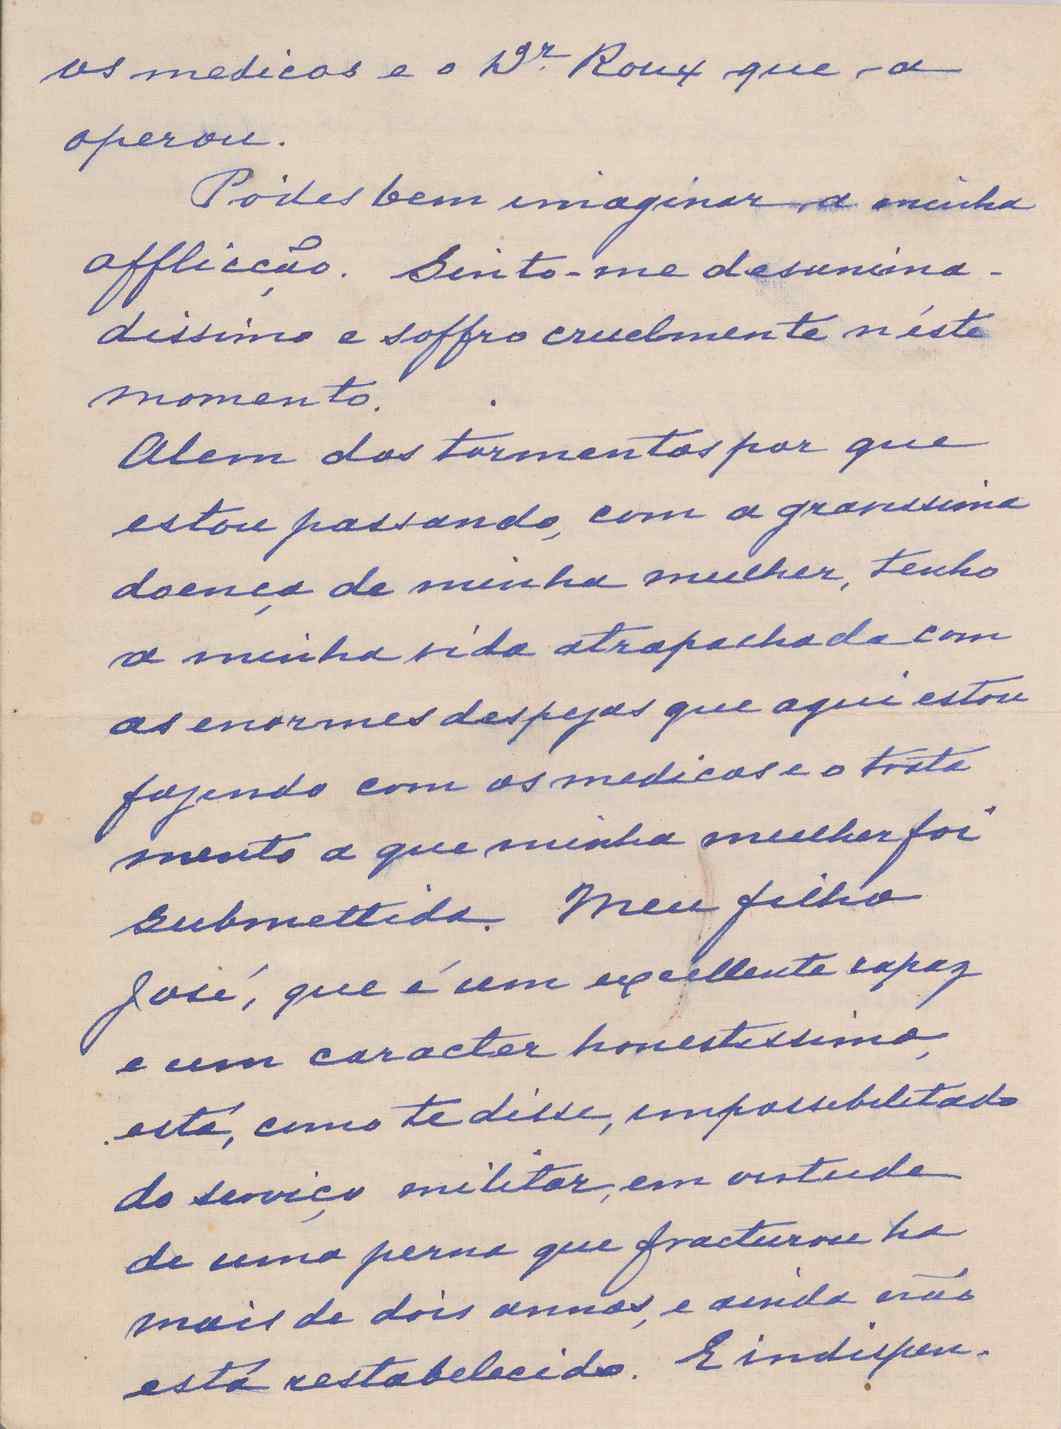 os medicos e o Dr. Roux que a
operou.
Pódes bem imaginar a minha
afflicção. Sinto-me desanima-
dissimo e soffro cruelmente n'éste
momento.
Alem dos tormentos por que
estou passando, com a gravissima
doença de minha mulher, tenho
a minha vida atrapalhada com
as enormes despezas que aqui estou
fazendo com os medicos e o trata
mento a que minha mulher foi
submettida. Meu filho
José, que é um excellente rapaz
e um caracter honestissimo,
está, como te disse, impossibilitado
do serviço militar, em virtude
de uma perna que fracturou ha
mais de dois annos, e ainda não
está restabelecido. E indispen-